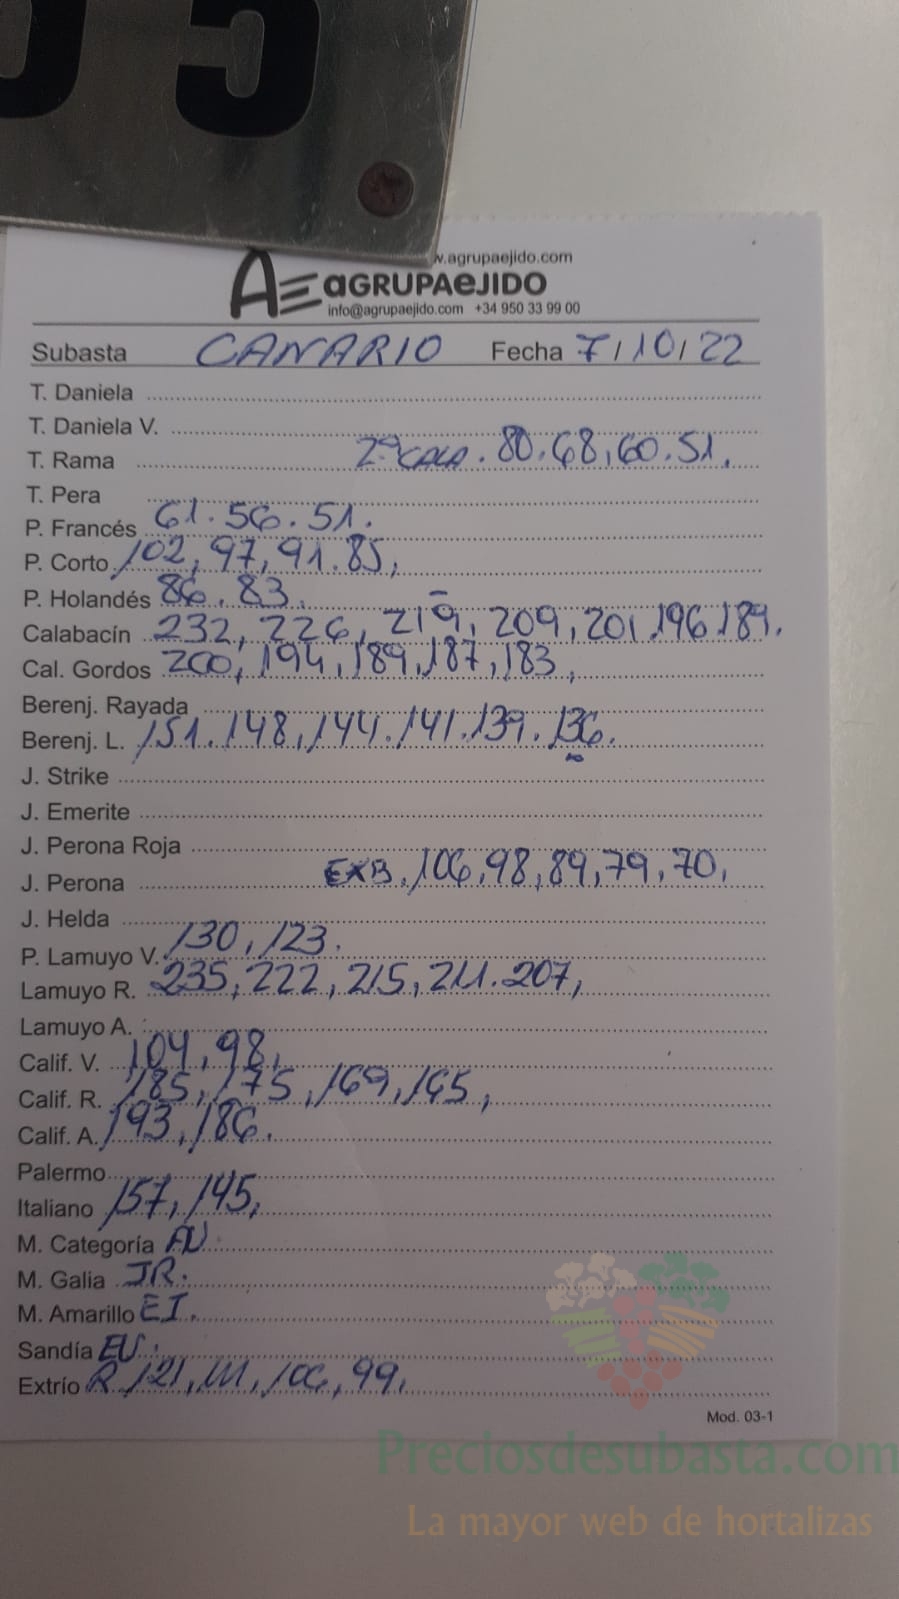 05
w.agrupaejido.com
AE aGRUPAeJIDO
info@agrupaejido.com +34 950 33 99 00
Subasta CANARIO Fecha 7/10/22
T. Daniela
T. Daniela V.
T. Rama 2ª CALA. 80.68,60.51.
T. Pera
P. Francés 61.56.51.
P. Corto 102, 97, 91.85,
P. Holandés 86.83.
Calabacín 232, 226, 219, 209, 201.196.189.
Cal. Gordos 200, 194, 189, 187, 183,
Berenj. Rayada
Berenj. L. 151.148, 144.141.139.136.
J. Strike
J. Emerite
J. Perona Roja
J. Perona EXB. 106,98,89,79,70,
J. Helda
P. Lamuyo V. 130, 123.
Lamuyo R. 235, 222, 215, 211.207,
Lamuyo A.
Calif. V. 104, 98,
Calif. R. 185, 175, 169, 165,
Calif. A. 193, 186.
Palermo
Italiano 157, 145,
M. Categoría AU
M. Galia JR.
M. Amarillo EI.
Sandía EU.
Extrío R 121, 111, 106, 99,
Mod. 03-1
Preciosdesubasta.com
La mayor web de hortalizas